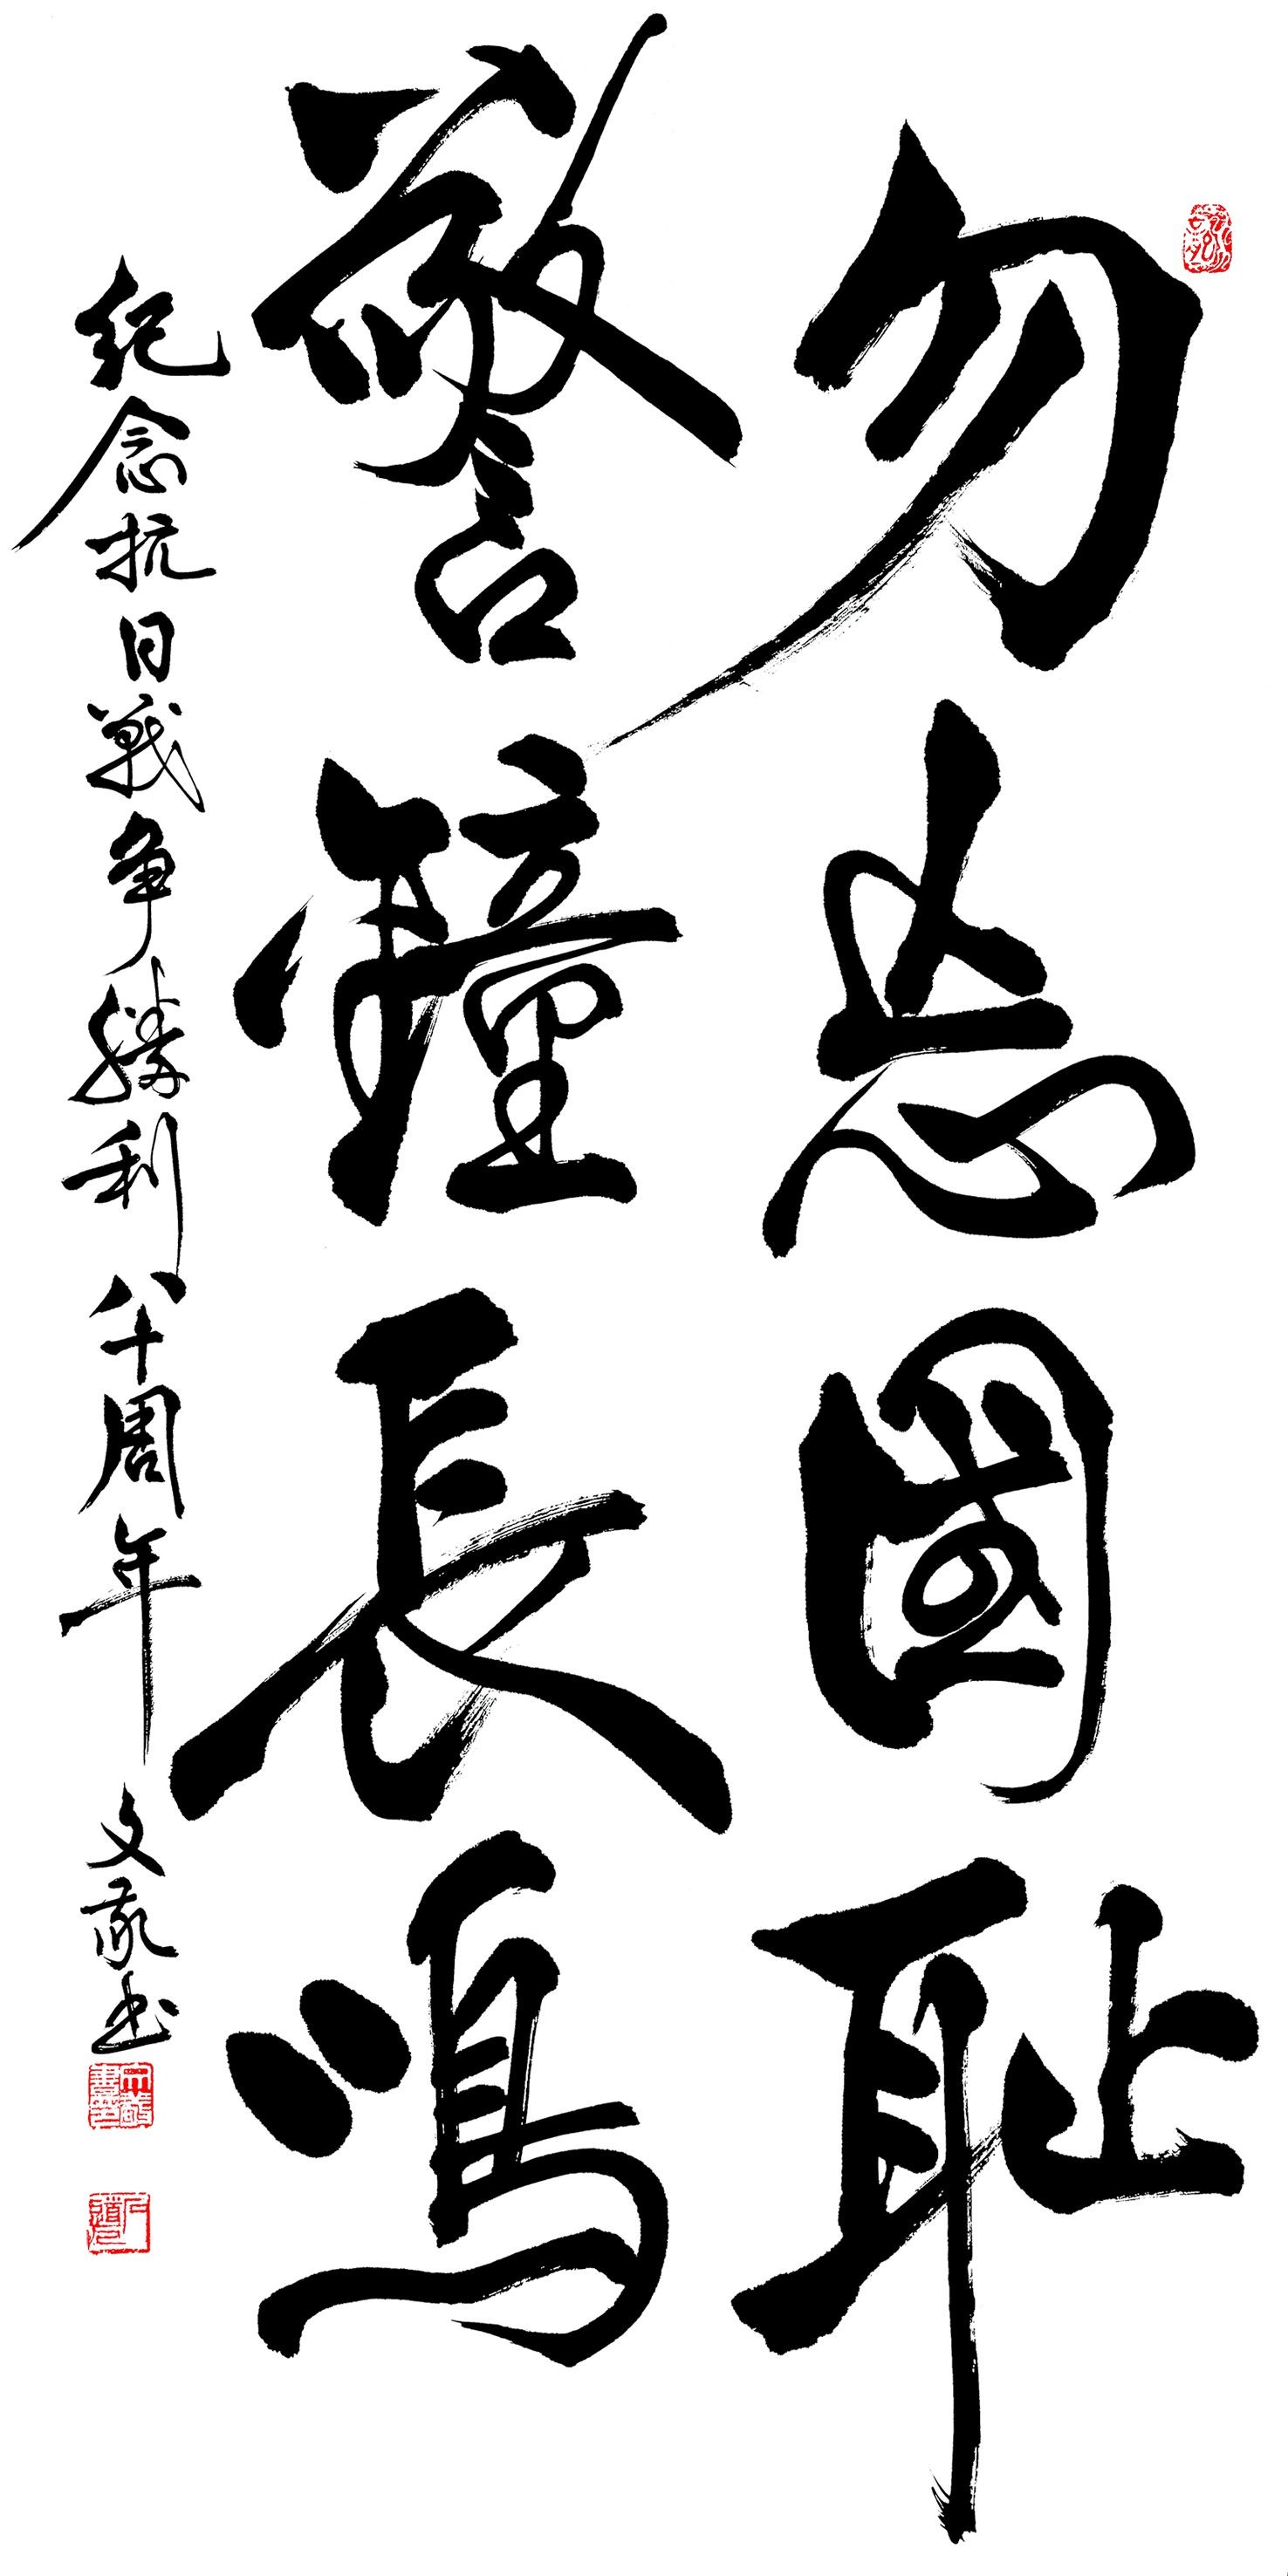 勿忘國耻
警鐘長鳴
紀念抗日戰争勝利八十周年 文敬书